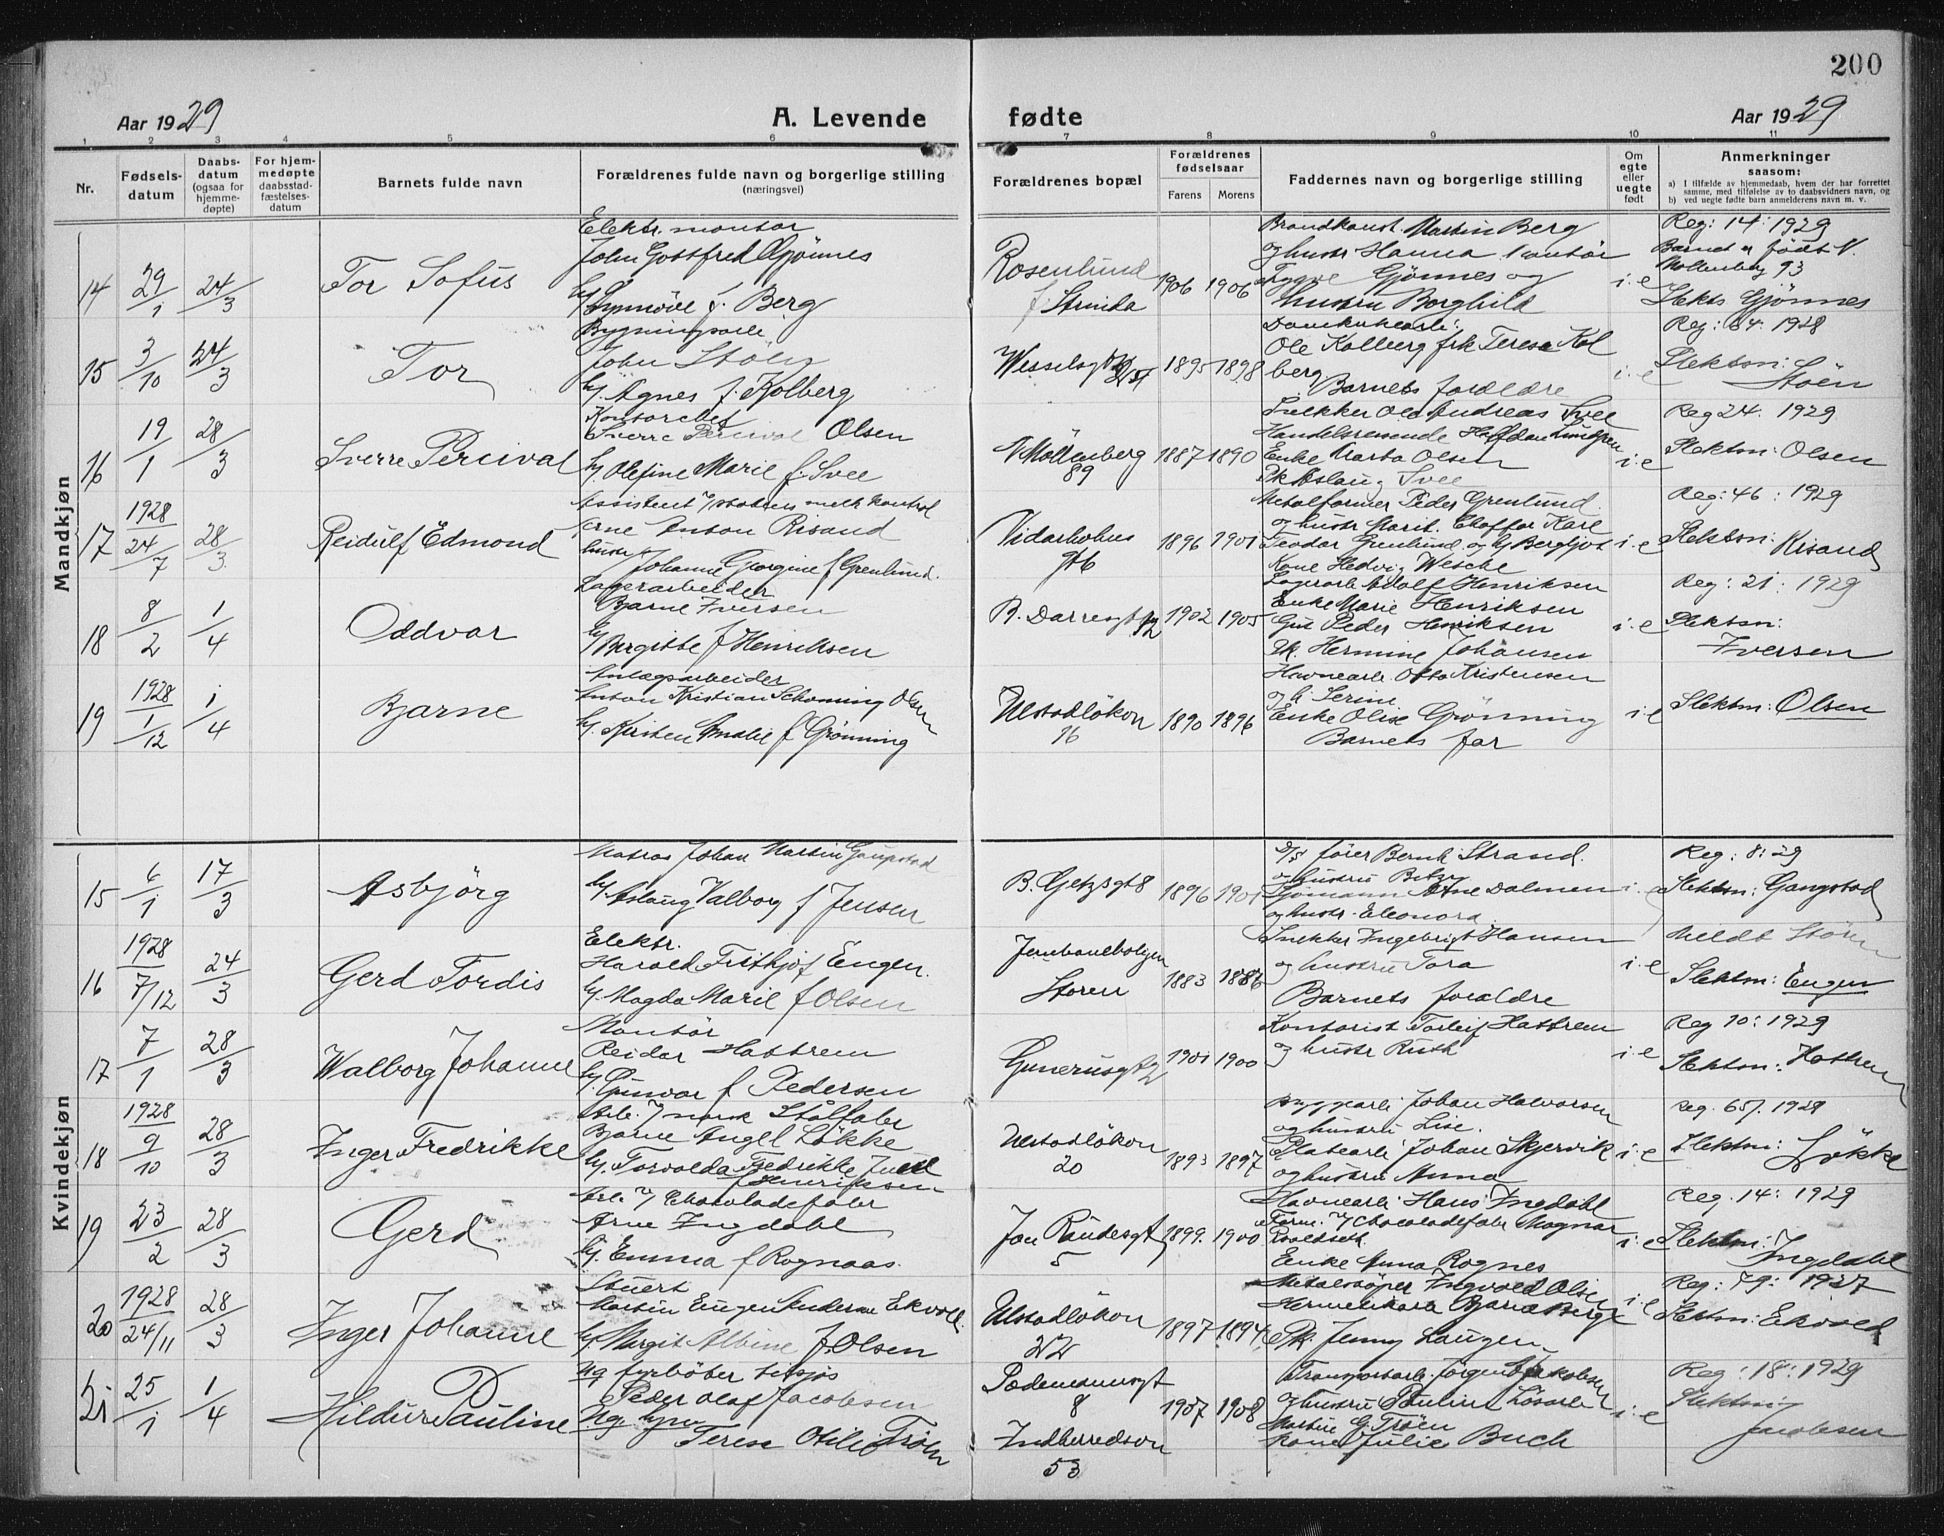 200
Aar 1929
A. Levende fødte
Aar 1929
1 2 3 4 5 6 7 8 9 10 11
Nr.
Fødsels-
datum
Daabs-
datum
(ogsaa for
hjemme-
døpte)
For hjem-
medøpte
daabsstad-
fæstelses-
datum
Barnets fulde navn
Forældrenes fulde navn og borgerlige stilling
(næringsvei)
Forældrenes bopæl
Forældrenes
fødselsaar
Farens Morens
Faddernes navn og borgerlige stilling
Om
egte
eller
uegte
født
Anmerkninger
saasom:
a) I tilfælde av hjemmedaab, hvem der har forrettet
samme, med tilføielse av to daabsvidners navn, og
b) ved uegte fødte barn anmelderens navn m. v.
Mandkjøn
14 29/1 24/3 Tor Sofus
Elektr. montør
John Gottfred Gjönnes
f. Berg
Rosenlund
Strinda
1906 1906
Martin Berg
og hustr Hanna
Gjönnes og
hustru Borghild
i. e
Reg: 14: 1929
Barnet er født
Mollenberg 93
Slekts Gjönnes
15 3/10 24/3 Tor
John Stöen
h/ Agnes f. Kolberg
Wesselsgt
1895 1898
Ole Kolberg frk Terese Kol
berg
Barnets foreldre
i. e
Reg: 84. 1928
Slektsn:
Stöen
16 19/1 28/3 Sverre Percival
Kontorchef
Sverre Percival Olsen
h/ Olefine Marie f. Svee
Möllenberg
89
1887 1890
Snekker Ole Andreas Svee
Handelsreisende
Enke Marta Olsen
Aslaug Svee
i. e
Reg 24. 1929
Slektsn: Olsen
17 1928 24/7 28/3 Reidulf Edmond
Arne Anton Risand
hustr Johanne Georgine f Grenlund.
1896 1901
Metalformer Peder Grenlund.
og hustr Marit. Karl
Teodor Grenlund og h/ Bergljot
Kone Hedvig
i. e
Reg: 46: 1929
Slektsn: Risand
18 8/2 1/4 Oddvar
Lagerarbeider
Bjarne Iversen
h/ Bergitte f Henriksen
1902 1905
Lagerarb Adolf Henriksen
Enke Marie Henriksen
Peder Henriksen
Hermine Johansen
i. e
Reg: 21. 1929
Slektsn:
Iversen
19 1928 1/12 1/4 Bjarne
Anlægsarbeider
Anton Kristian Schonning Olsen
h/ Kirsten Amalie f Grönning
Ulstadlökon
16
1890 1896
Havnearb. Otto Kristensen
og h. Serine
Enke Olise Grönning
Barnets far
i. e
Slektsn: Olsen
Kvindekjøn
15 6/1 17/3 Asbjörg
Matros Johan Martin Gangstad
h/ Aslaug Valborg f Jensen
B. Getzsgt 8
1896 1901
D/S fører Bernh Strand.
og hustru Betzy
Sjömann Arne Dalmen
og hustr. Eleonora
i. e
Reg: 8: 29
Slektsn: Gangstad
16 1928 7/12 24/3 Gerd Tordis
Elektr.
Harald Frithjof Engen.
h/ Magda Marie f Olsen
Jernbaneboligen
Støren
1883 1886
Snekker Ingebrigt Hansen
og hustru Tora
Barnets foreldre
i. e
Meldt Stören
Slektsn: Engen
17 7/1 28/3 Walborg Johanne
Montör
Reidar Hattrem
h/ Gunvor f Pedersen
Gunerusgt
1901 1900
Kontorist Torleif Hattrem
og hustr Ruth
i. e
Reg 10: 1929
Slektsn: Hattrem
18 1928 9/10 28/3 Inger Fredrikke
Arb. v/ norsk Stålfabr
Bjarne Angel Lökke
h/ Torvalda Fredrikke Juell
f Henriksen
Ulstadlökon
20
1893 1897
Byggearb Johan Halvorsen
og hustru Lise.
Platearb Johan Skjervik
og hustru Anna
i. e
Reg. 657. 1928
Slektsn:
Lökke
19 23/2 28/3 Gerd
Arb. v/ Chocoladefabr
Arne Ingdahl
h/ Emma f Rognaas.
5
1899. 1900
Havnearb Hans Ingdahl
Form. v/ Chocoladefabr Magnar
Roaldseth
Enke Anna Rognes
i. e
Reg. 14: 1929
Slektsn:
Ingdahl
20 1928 24/11 28/3 Inger Johanne
Stuert
Martin Eugen Ekvoll
h/ Margit Albine f. Olsen
Ulstadlökon
22
1897 1894
Ingvald Olsen
Bjarne Berge
Jenny Laugen
i. e
Reg: 79: 1927
Slektsn: Ekvoll
21 25/1 1/4 Hildur Pauline
Ug fyrböter tilsjøs
Peder Olaf Jacobsen
Ug
Terese Otilie Tröen
8
Indherredsvn
53
1907 1908
Transportarb. Jörgen Jakobsen
og hustru Pauline Lösarb
Martin G. Tröen
Kone Julie Buch
i. e
Reg: 18: 1929
Slektsn:
Jacobsen